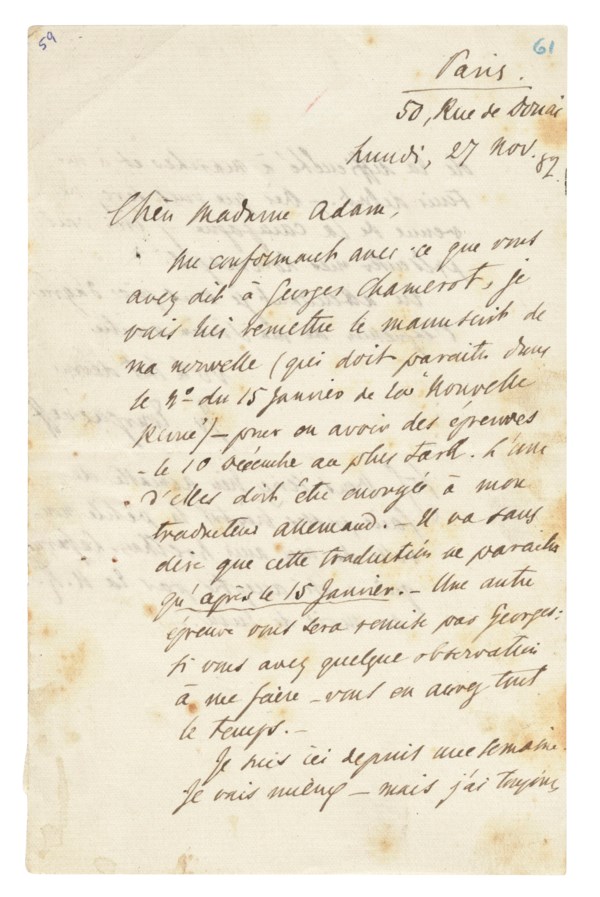 59
61
Paris.
50, Rue de Douai
Lundi, 27 Nov. 82.
Chère Madame Adam,
Me conformant avec ce que vous
avez dit à Georges Chamerot, je
vais lui remettre le manuscrit de
ma nouvelle (qui doit paraître dans
le No du 15 Janvier de la Nouvelle
Revue) – pour en avoir des épreuves
– le 10 Décembre au plus tard. L'une
d'elles doit être envoyée à mon
traducteur allemand. – Il va sans
dire que cette traduction ne paraîtra
qu'après le 15 Janvier. – Une autre
épreuve vous sera remise par Georges:
si vous avez quelque observation
à me faire – vous en aurez tout
le temps. –
Je suis ici depuis une semaine.
Je vais mieux – mais j'ai toujours